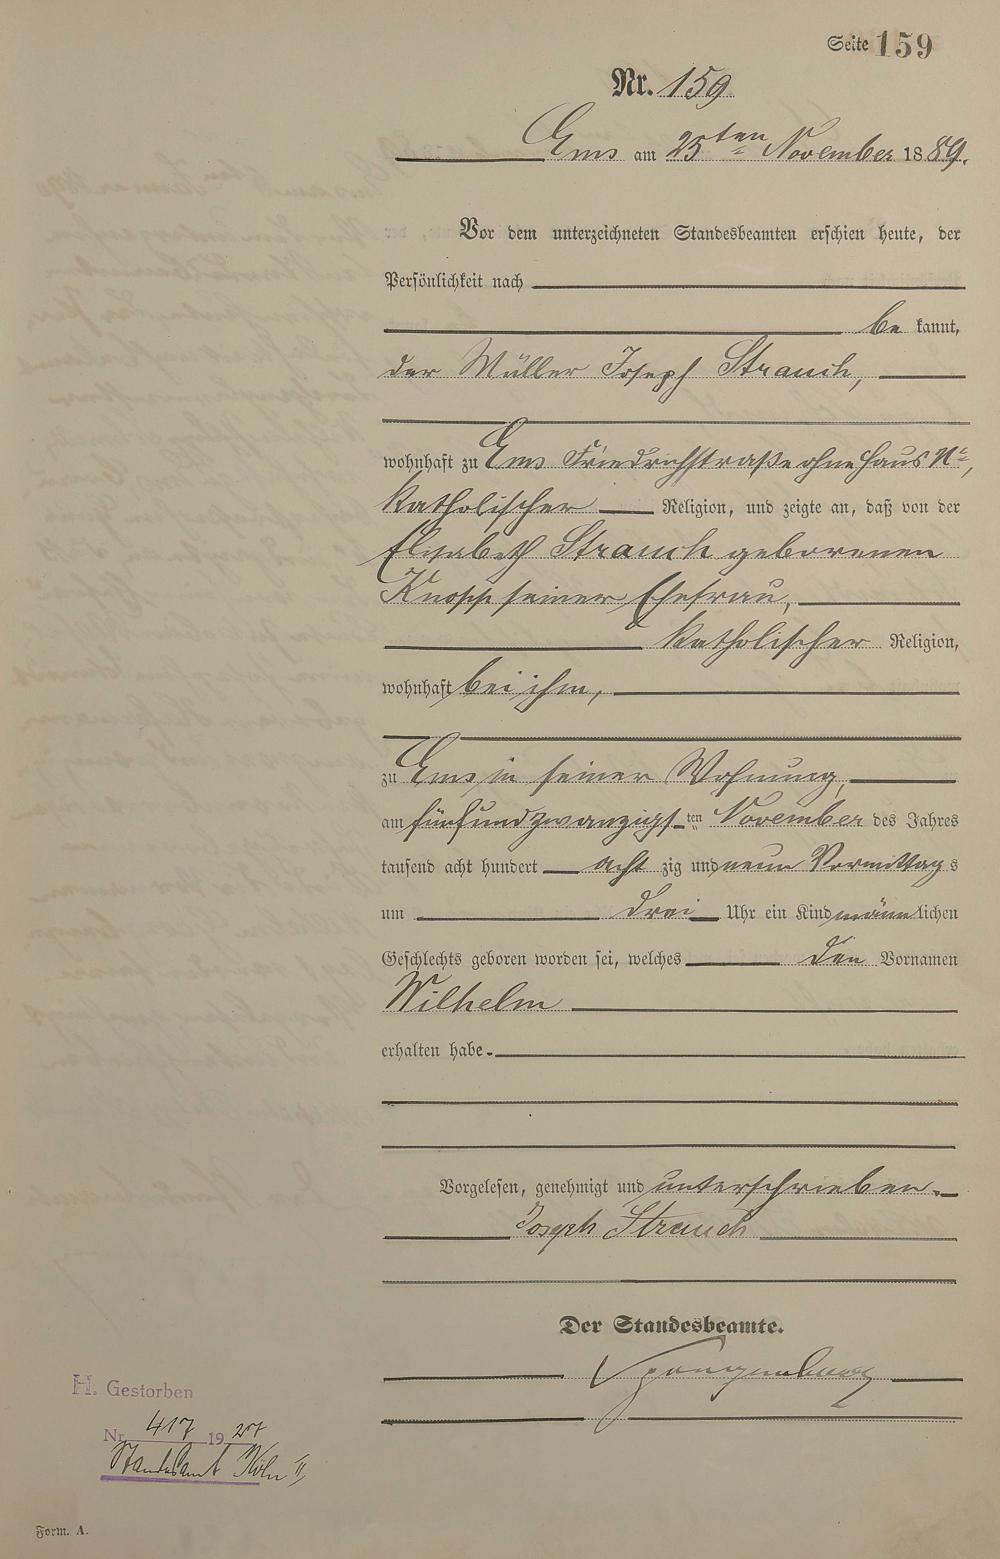 Seite 159
Nr. 159
Ems am 25ten November 1889.
Vor dem unterzeichneten Standesbeamten erschien heute, der
Persönlichkeit nach
be kannt,
der Müller Joseph Strauch,
wohnhaft zu Ems Friedrichstraße ohne Haus No,
katholischer Religion, und zeigte an, daß von der
Elisabeth Strauch geborenen
Knopp seiner Ehefrau,
katholischer Religion,
wohnhaft bei ihm,
zu Ems in seiner Wohnung,
am fünfundzwanzigsten November des Jahres
tausend acht hundert acht zig und neun Vormittags
um drei Uhr ein Kind männlichen
Geschlechts geboren worden sei, welches den Vornamen
Wilhelm
erhalten habe.
Vorgelesen, genehmigt und unterschrieben.
Joseph Strauch
Der Standesbeamte.
H. Gestorben
Nr. 417 1927
Standesamt Köln II
Form. A.